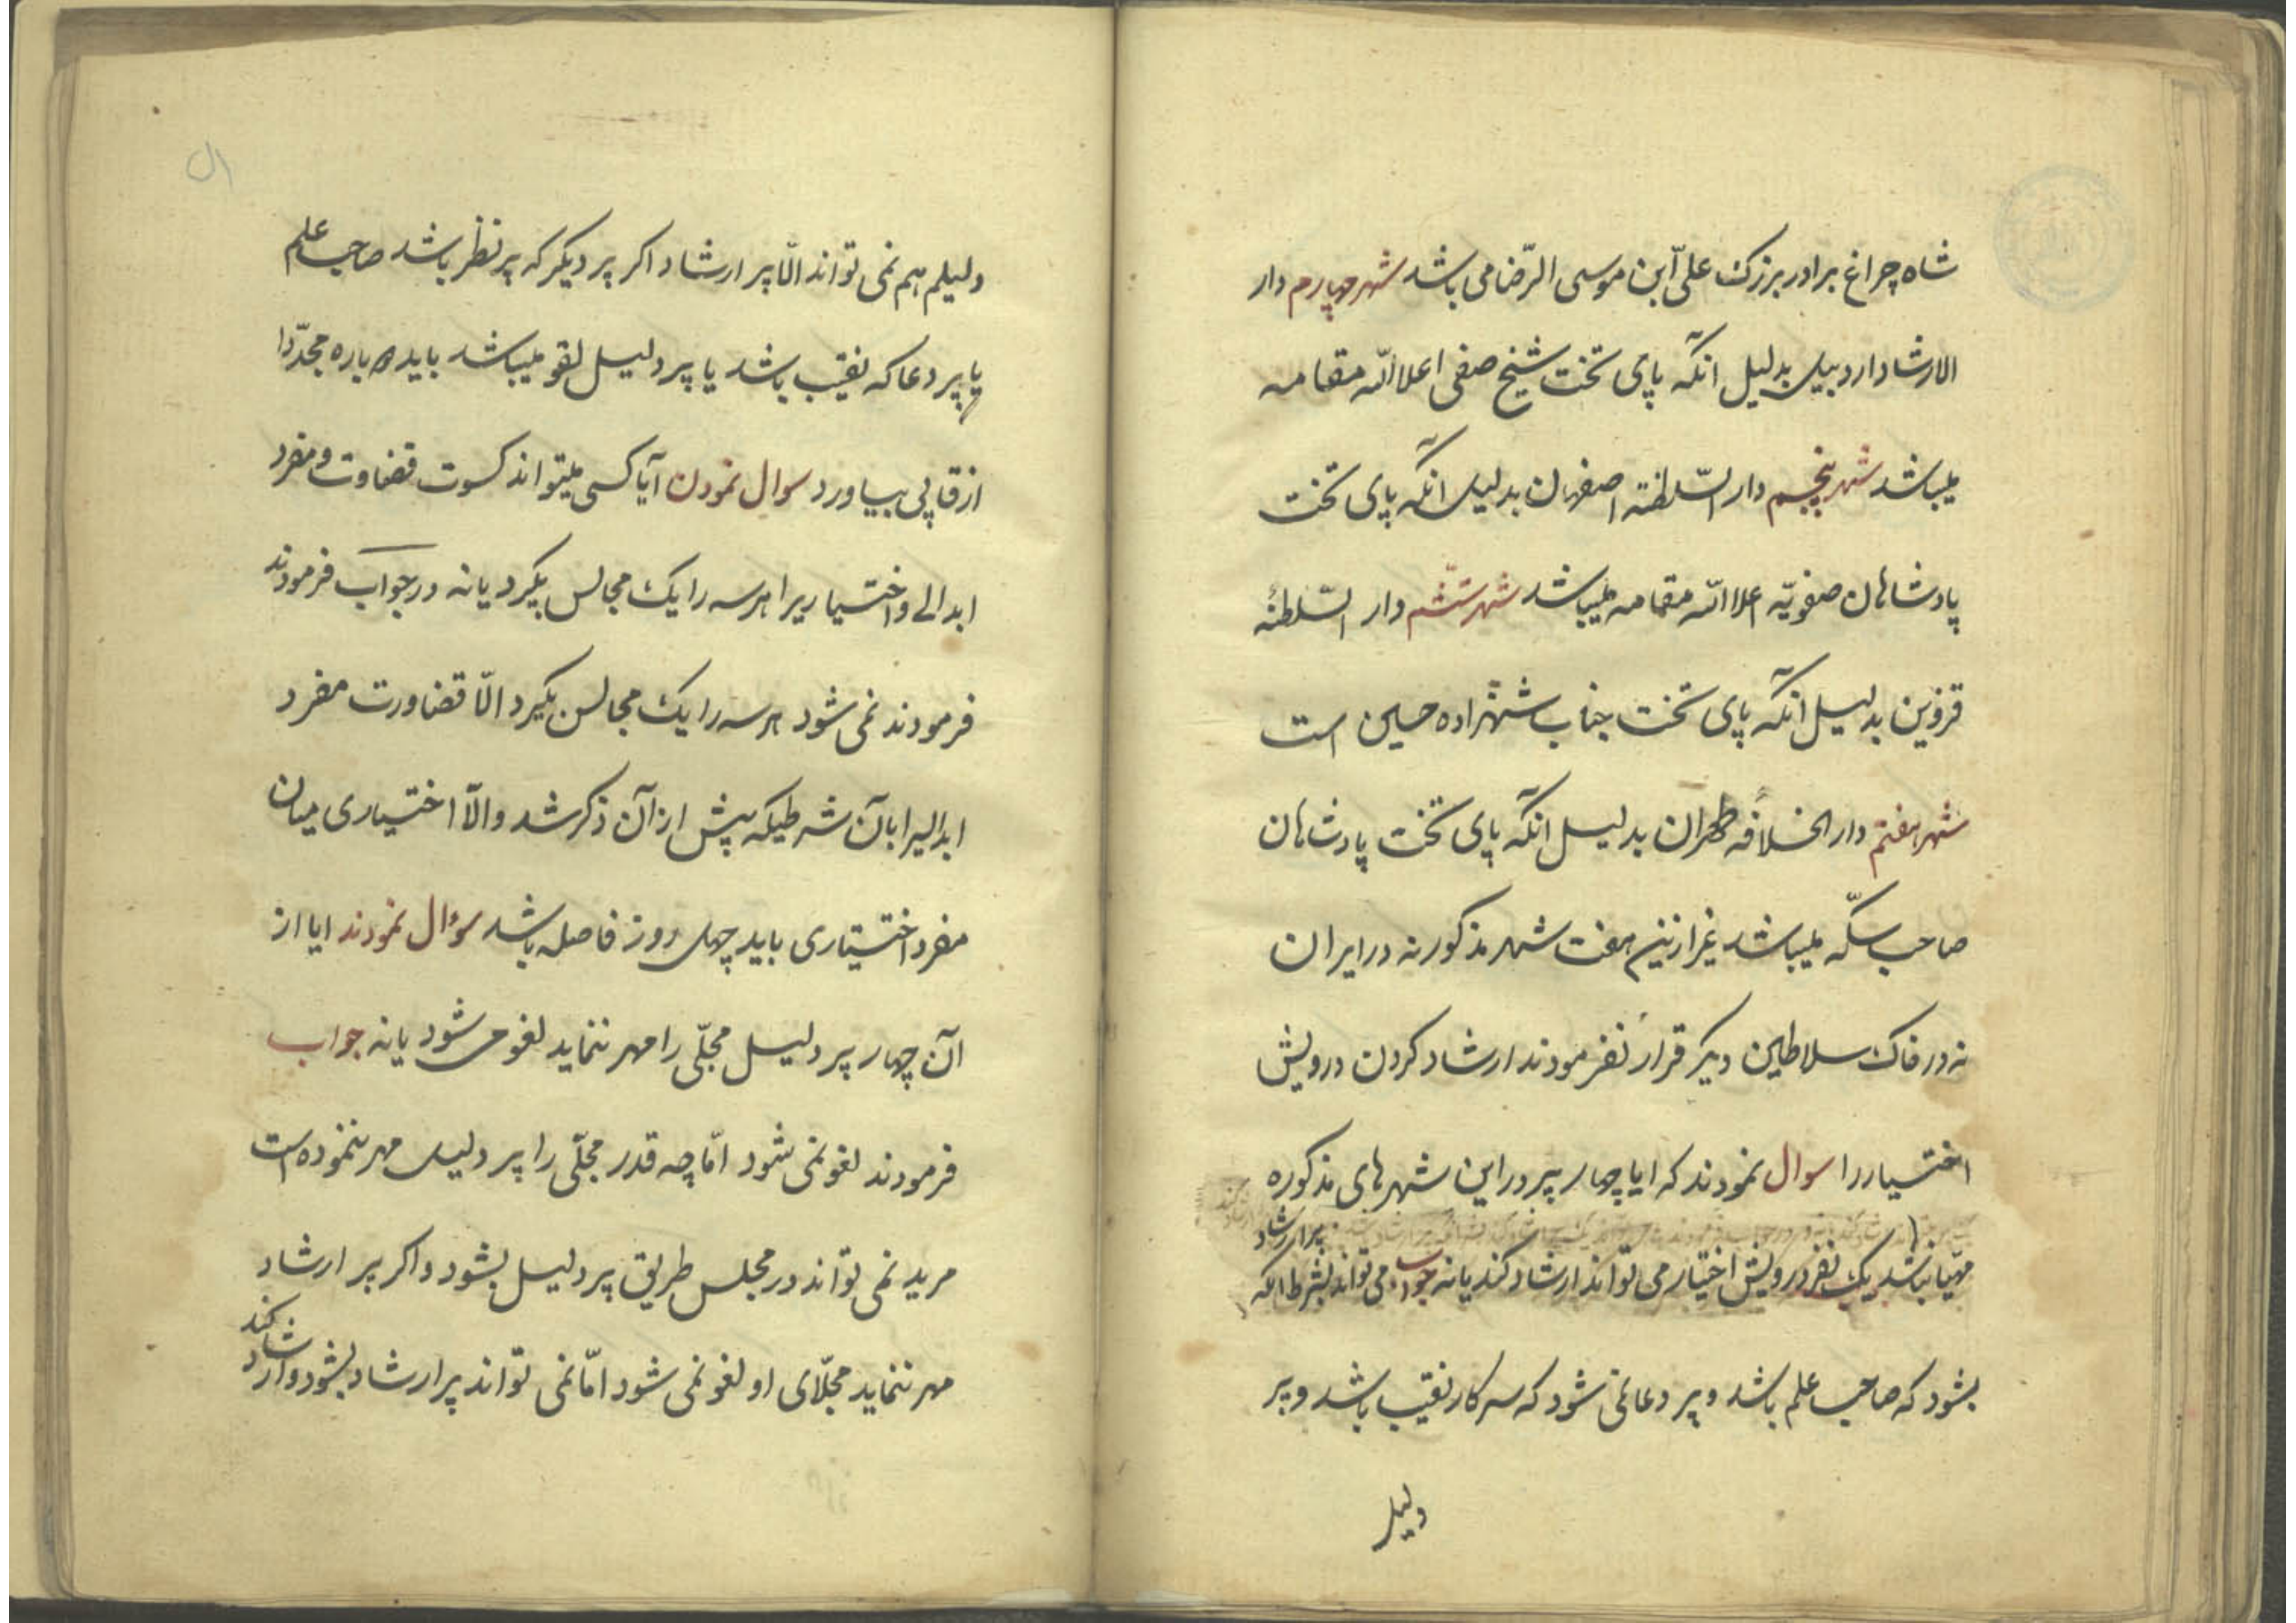 شاه چراغ برادر بزرک علیّ ابن موسی الرّضا می باشد شهر چهارم دار
الارشاد اردبیل بدلیل انکه پای تخت شیخ صفی اعلا الله مقامه
میباشد شهر پنجم دار السّلطنه اصفهان بدلیل انکه پای تخت
پادشاهان صفویّه اعلا الله مقامه میباشد شهر ششم دار السّلطنهٔ
قزوین بدلیل انکه پای تخت جناب شهزاده حسین است
شهر هفتم دار الخلافه طهران بدلیل انکه پای تخت پادشاهان
صاحب سکّه میباشد غیر ازین هفت شهر مذکور نه در ایران
نه در خاک سلاطین دیکر قرار نفرمودند ارشاد کردن درویش
اختیار را سوال نمودند که ایا چهار پیر در این شهرهای مذکوره
مهیّا نباشد یک نفر درویش اختیار می تواند ارشاد کند یا نه جواب می تواند بشرط انکه پیر ارشاد
بشود که صاحب علم باشد و پیر دعا نمی شود که سرکار نقیب باشد و پیر
دلیل
دلیلم هم نمی تواند الّا پیر ارشاد اکر پیر دیکر که پیر نظر باشد صاحب علم
یا پیر دعا که نقیب باشد یا پیر دلیل لقو میباشد باید دوباره مجدّدا
از قاپی بیاورد سوال نمودن آیا کسی میتواند کسوت قضاوت و مفرد
ابدالے و اختیاریرا هر سه را یک مجالس بکیرد یا نه در جواب فرمودند
فرمودند نمی شود هر سه را یک مجالس بکیرد الّا قضاورت مفرد
ابدالیرا بآن شرطیکه پیش از آن ذکر شد والّا اختیاری میان
مفرد اختیاری باید چهل روز فاصله باشد سؤال نمودند ایا از
آن چهار پیر دلیل مجلّی را مهر ننماید لغو می شود یا نه جواب
فرمودند لغو نمی شود امّا چه قدر مجلّی را پیر دلیل مهر ننموده است
مرید نمی تواند در مجلس طریق پیر دلیل بشود و اکر پیر ارشاد
مهر ننماید مجلّای او لغو نمی شود امّا نمی تواند پیر ارشاد بشود و ارشاد کند